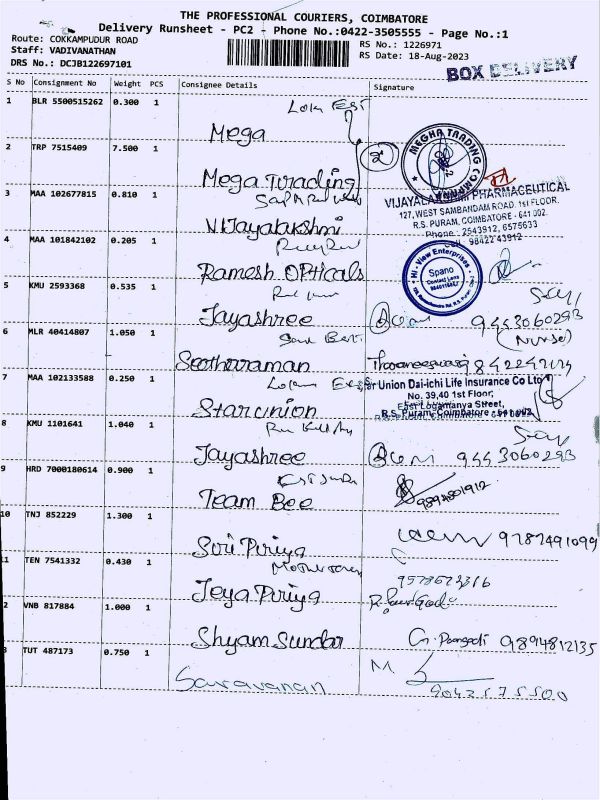 THE PROFESSIONAL COURIERS, COIMBATORE
Delivery Runsheet - PC2 - Phone No.:0422-3505555 - Page No.:1
Route: COKKAMPUDUR ROAD
RS No.: 1226971
Staff: VADIVANATHAN
RS Date: 18-Aug-2023
DRS No.: DCJB122697101
BOX DELIVERY
S No Consignment No Weight PCS Consignee Details Signature
1 BLR 5500515262 0.300 1
Mega
2 TRP 7515409 7.500 1
MEGHA TRADING
Mega Trading
VIJAYALAKSHMI PHARMACEUTICAL
127, WEST SAMBANDAM ROAD, 1st FLOOR,
R.S. PURAM, COIMBATORE - 641 002.
Phone : 2543912, 6575633
Cell : 98422 43912
3 MAA 102677815 0.810 1
Vijayalakshmi
4 MAA 101842102 0.205 1
Hi - View Enterprises
Spano
Contact Lens
Ramesh Opticals
5 KMU 2593368 0.535 1
Jayashree
9443060293
(Nurse)
6 MLR 40414807 1.050 1
Seetharaman
7 MAA 102133588 0.250 1
Star Union Dai-ichi Life Insurance Co Ltd
No. 39,40 1st Floor,
East Logamanya Street,
R.S. Puram, Coimbatore - 641 002
Starunion
8 KMU 1101641 1.040 1
Jayashree
9443060293
9 HRD 7000180614 0.900 1
Team Bee
9894801912
10 TNJ 852229 1.300 1
Siri Piriya
9787491099
11 TEN 7541332 0.430 1
Jeya Piriya
12 VNB 817884 1.000 1
Shyam Sundar
9894812135
13 TUT 487173 0.750 1
Saravanan
M
9042575500